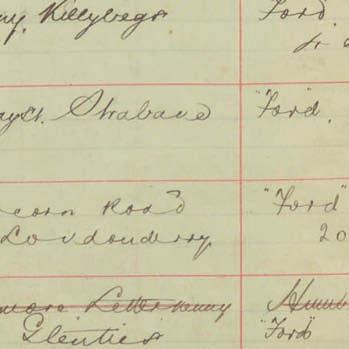 Killybegs "Ford"
St. Strabane "Ford".
Road "Ford"
Londonderry 20
Letterkenny
Glenties "Ford"